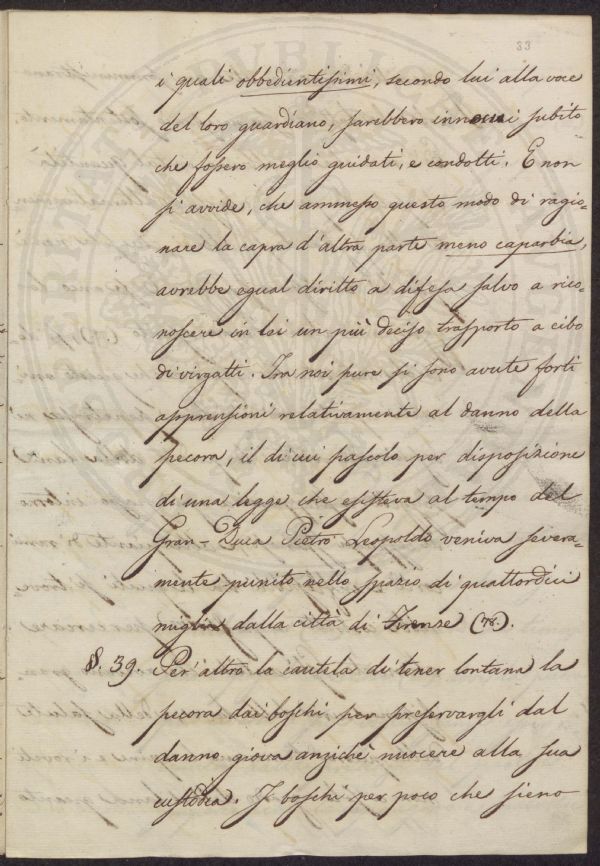 33
i quali obbedientissimi, secondo lui alla voce
del loro guardiano, sarebbero innocui subito
che fossero meglio guidati, e condotti. E non
si avvide, che ammesso questo modo di ragio=
nare la capra d'altra parte meno caparbia,
avrebbe egual diritto a difesa salvo a rico=
noscere in lei un più deciso trasporto a cibo
di virgatti. Tra noi pure si sono avute forti
apprensioni relativamente al danno della
pecora, il di cui pascolo per disposizione
di una legge che esisteva al tempo del
Gran-Duca Pietro Leopoldo veniva severa=
mente punito nello spazio di quattordici
miglia dalla città di Firenze (78).
§. 39. Per altro la cautela di tener lontana la
pecora dai boschi per preservargli dal
danno giova anzichè nuocere alla sua
custodia. I boschi per poco che sieno